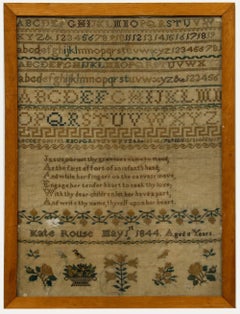 ABCDEFGHIJKLMNOPQRSTUVWX
YZ&1234567891011121314151617181
abcdefghijklmnopqrstuvwxyz12345678
ABCDEFGHIJKLMNOPQRSTUVWX
abcdefghijklmnopqrstuvwxyz&12345
ABCDEFGHIJKLMN
OPQRSTUVWXYZ
Jesus permit thy gracious name to stand,
As the first effort of an infant's hand,
And while her fingers on the canvass move,
Engage her tender heart to seek thy love,
With thy dear children let her have a part,
And write thy name thyself upon her heart.
Kate Rouse May 1844. Aged Years.